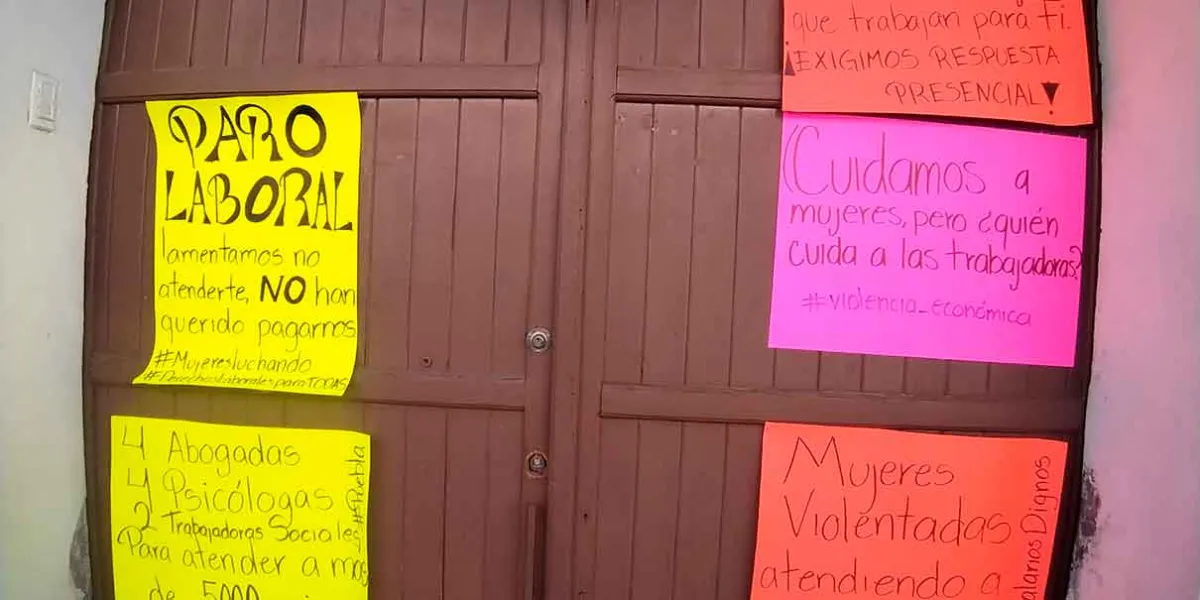 PARO
LABORAL
lamentamos no
atenderte, NO han
querido pagarnos
#Mujeresluchando
#DerechosLaboralesparaTODAS
4 Abogadas
4 Psicólogas
2 Trabajadoras Sociales
Para atender a mas
de 5000
#Puebla
que trabajan para ti.
¡EXIGIMOS RESPUESTA
PRESENCIAL!
Cuidamos a
mujeres, pero ¿quién
cuida a las trabajadoras?
#violencia_económica
Mujeres
Violentadas
atendiendo a
alarios Dignos